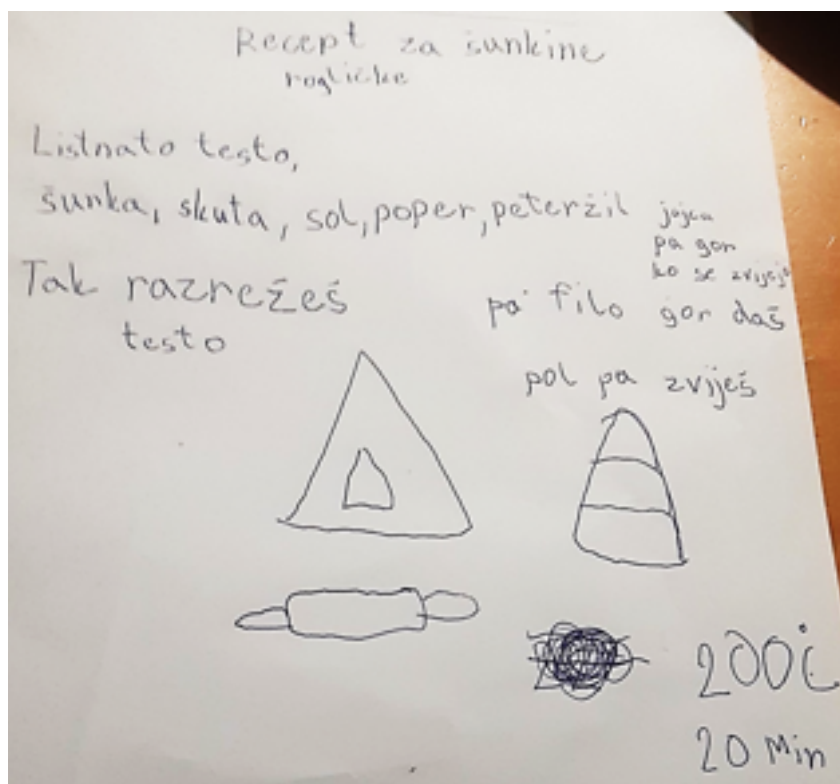 Recept za šunkine
rogličke
Listnato testo,
šunka, skuta, sol, poper, peteržil
jajca
pa gor
ko se zvijejo
Tak razrežeš
testo
pa filo gor daš
pol pa zviješ
200°C
20 Min